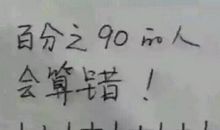 百分之90的人
会算错！